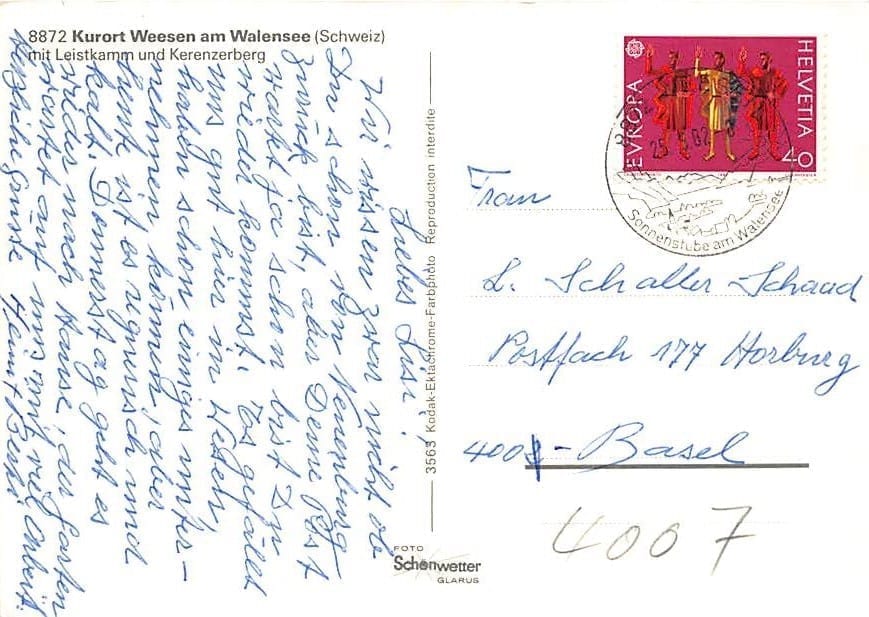 8872 Kurort Weesen am Walensee (Schweiz)
mit Leistkamm und Kerenzerberg
Liebes Lisi!
Wir wissen zwar nicht ob
Du schon von Neuenburg
zurück bist, aber Deine Post
wartet ja schon bist Du
wieder kommst. Es gefällt
uns gut hier in Wesen,
haben schon einiges unter-
nehmen können, aber
heute ist es regnerisch und
kalt. Donnerstag geht es
wieder nach Hause, der Garten
wartet auf uns mit viel Arbeit.
Herzliche Grüsse
3563 Kodak-Ektachrome-Farbphoto Reproduction interdite
FOTO
Schönwetter
GLARUS
EVROPA
HELVETIA
40
Sonnenstube am Walensee
Frau
L. Schaller Schaad
Postfach 177 Horburg
400 - Basel
4007